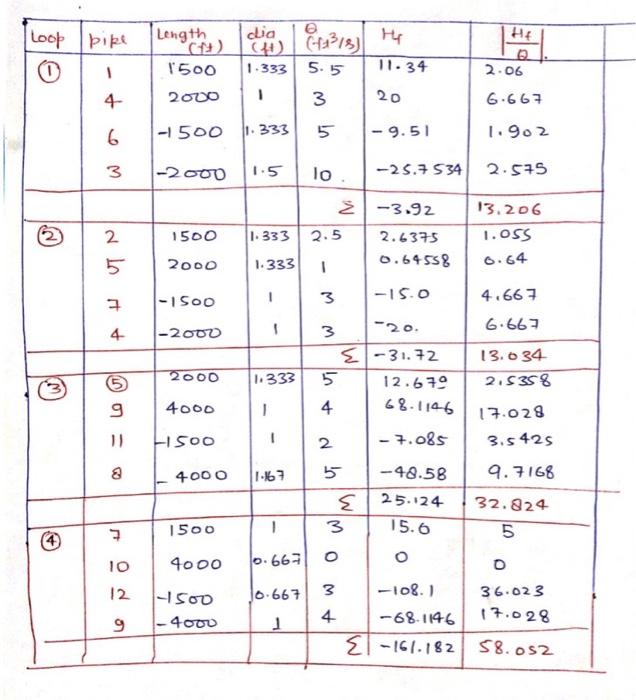 Loop pipe Length (ft) dia (ft) Q (ft3/s) Hf |Hf/Q|
① 1 1500 1.333 5.5 11.34 2.06
4 2000 1 3 20 6.667
6 -1500 1.333 5 -9.51 1.902
3 -2000 1.5 10. -25.7534 2.575
Σ -3.92 13.206
② 2 1500 1.333 2.5 2.6375 1.055
5 2000 1.333 1 0.64558 0.64
7 -1500 1 3 -15.0 4.667
4 -2000 1 3 -20. 6.667
Σ -31.72 13.034
③ ⑤ 2000 1.333 5 12.679 2.5358
9 4000 1 4 68.1146 17.028
11 -1500 1 2 -7.085 3.5425
8 -4000 1.167 5 -48.58 9.7168
Σ 25.124 32.824
④ 7 1500 1 3 15.0 5
10 4000 0.667 0 0 0
12 -1500 0.667 3 -108.1 36.023
9 -4000 1 4 -68.1146 17.028
Σ -161.182 58.052